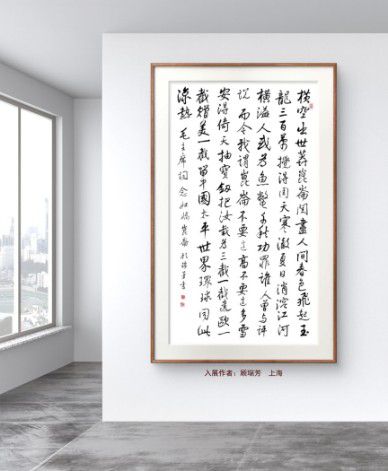 橫空出世莽崑崙閱盡人间春色飛起玉
龍三百萬攪得周天寒澈夏日消溶江河
横溢人或为魚鳖千秋功罪谁人曾与评
说而今我谓崑崙不要这高不要这多雪
安得倚天抽寶劍把汝裁为三截一截遗欧一
截赠美一截留中國太平世界環球同此
凉热 毛主席词 念奴嬌 崑崙 瑞芳书
入展作者：顾瑞芳 上海